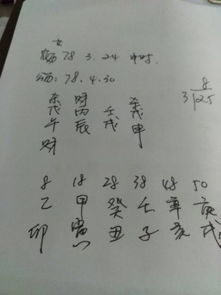 女
农历 78 3.24 申时
公历: 78.4.30
8
3/25
杀 财 杀
戊 丙 壬 戊
午 辰 戌 申
财
8 18 28 38 48 50
乙 甲 癸 壬 辛 庚
卯 寅 丑 子 亥 戌